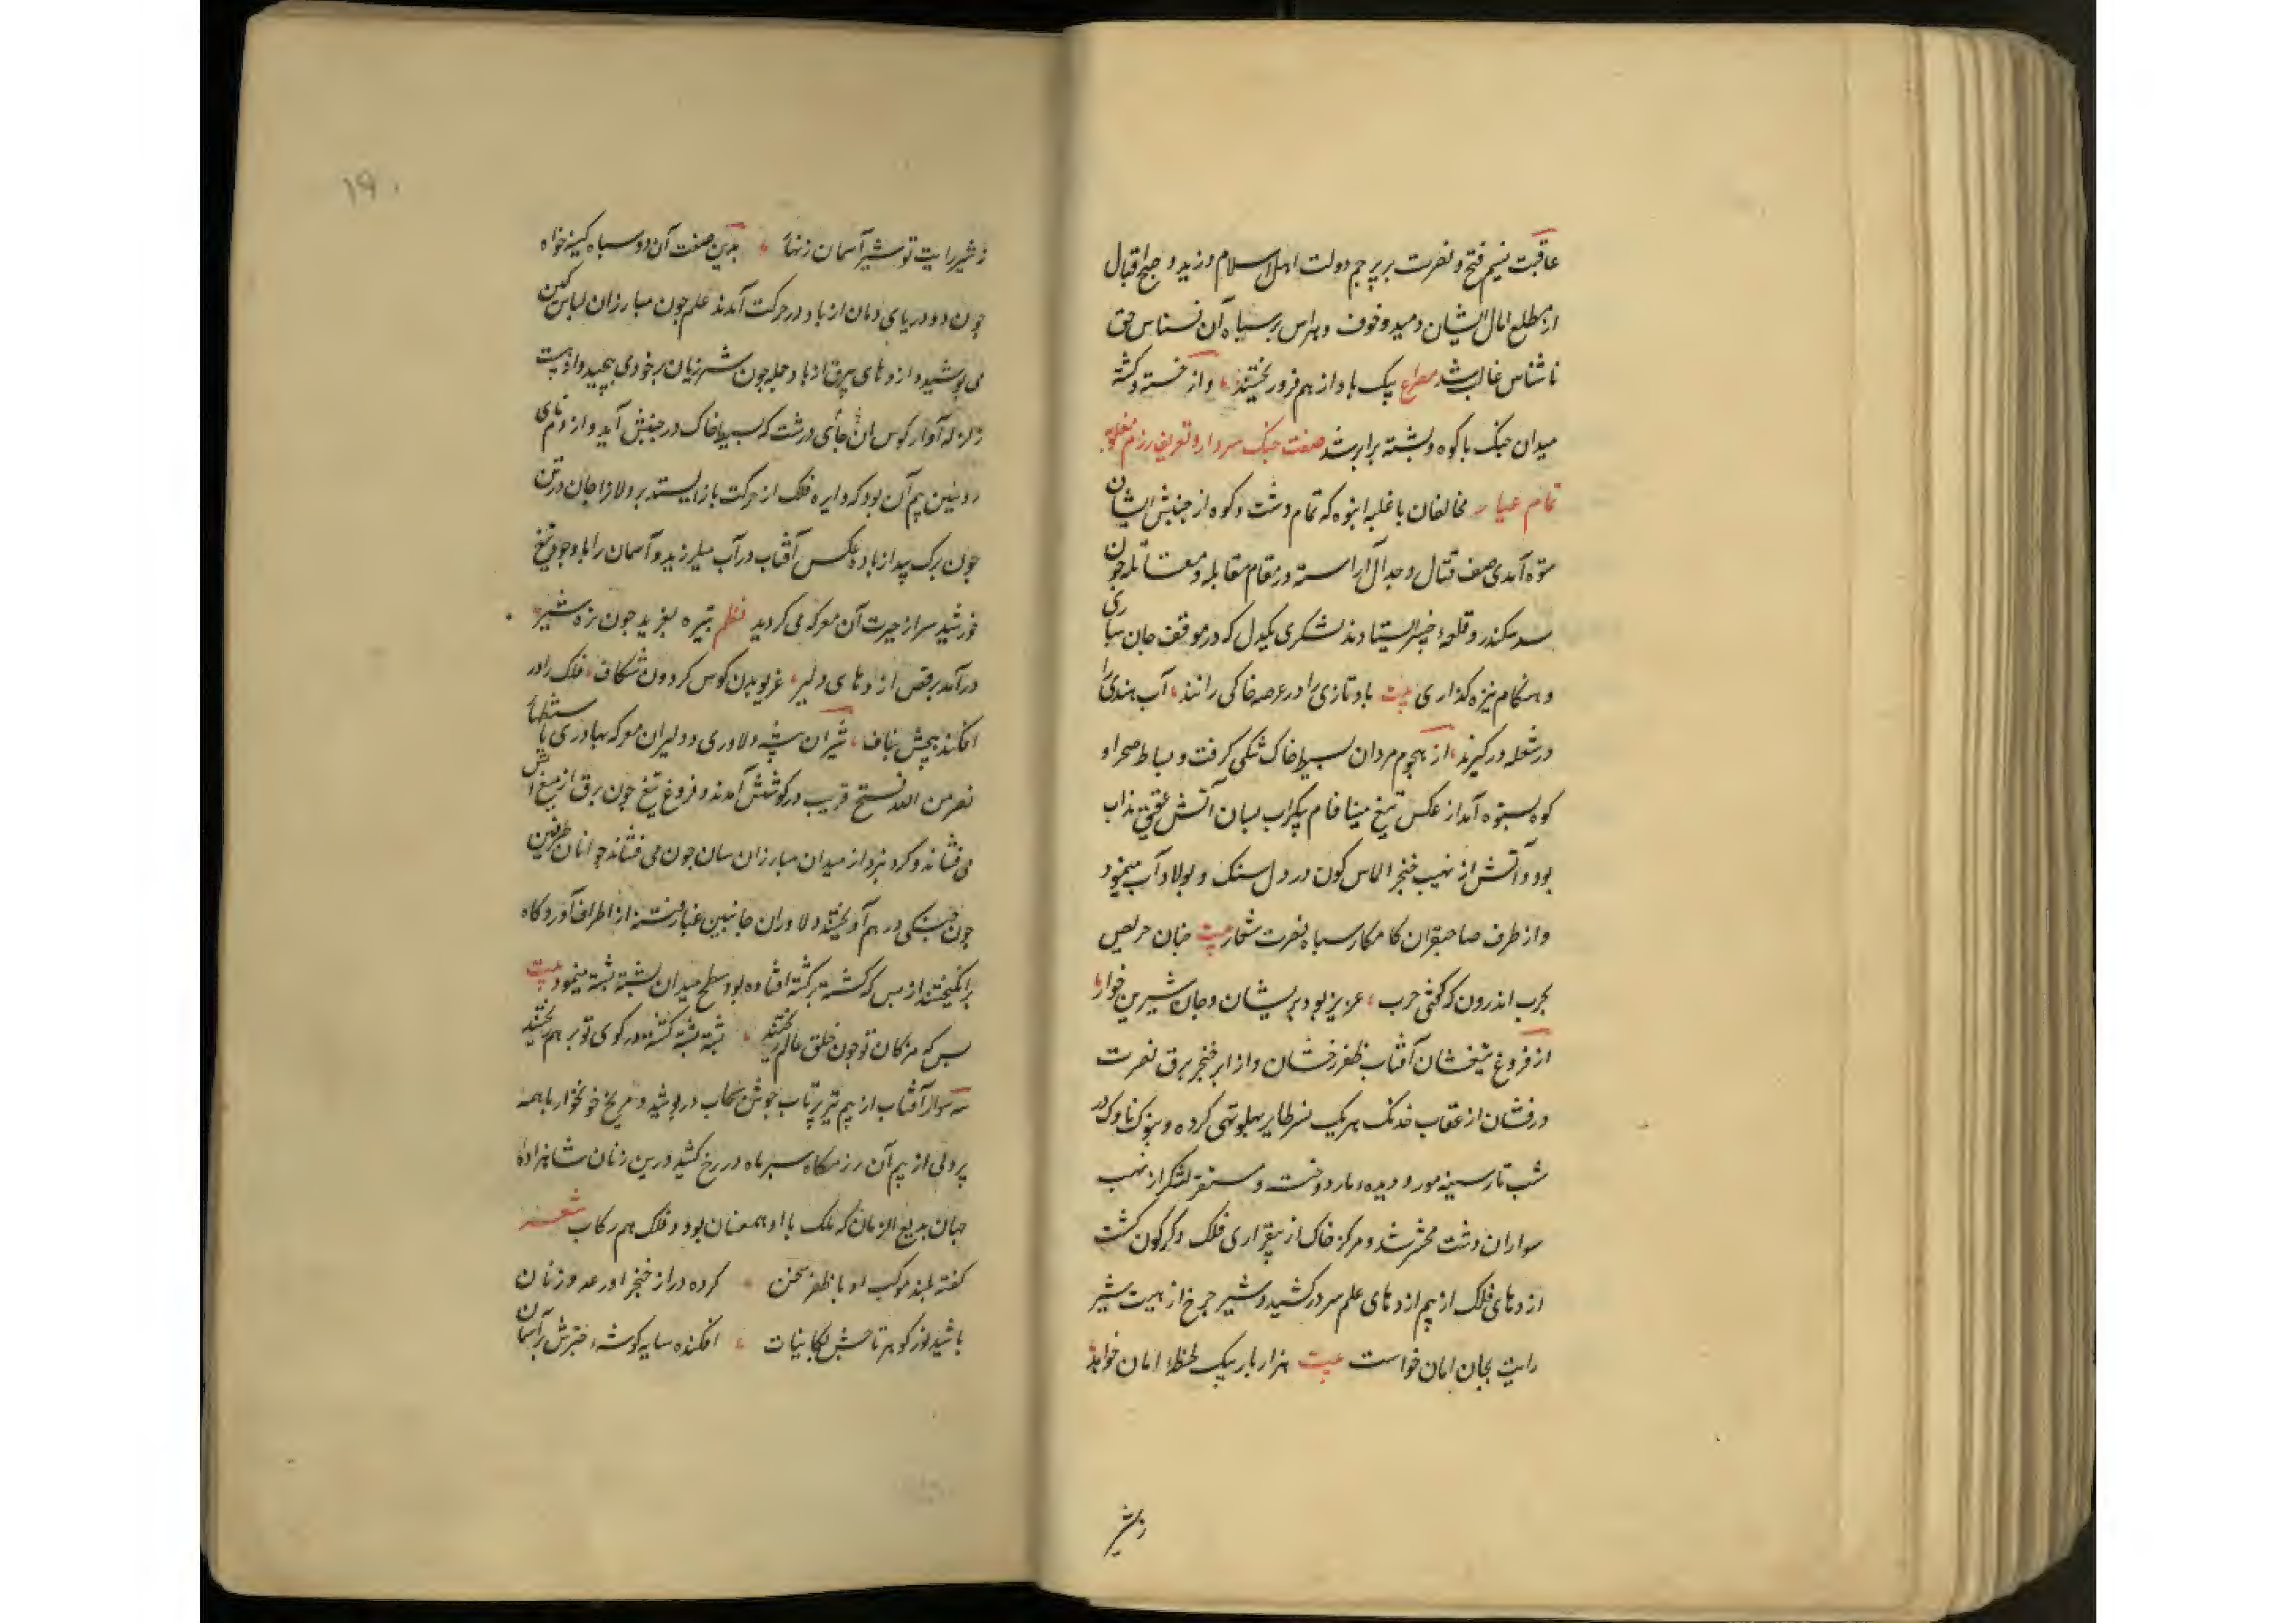 عاقبت نسیم فتح و نصرت بر پرچم دولت اهل اسلام وزید و صبح اقبال
از مطلع امال ایشان دمید و خوف و هراس بر سپاه آن نسناس حق
ناشناس غالب شد مصراع بیک باد از هم فرو ریختند و از خسته و کشته
میدان جنک با کوه و پشته برابر شد صفت جنک سرداراد تعریف رزم مغلوبه
تمام عیار مخالفان با غلبه انبوه که تمام دشت و کوه از جنبش ایشان
ستوه آمدی صف قتال و جدال آراسته در مقام مقابله و مقاتله چون
سد سکندر و قلعهٔ خیبر ایستادند لشکری یکدل که در موقف جان سپاری
و هنکام نیزه کذاری بیت باد تازی را در عرصه خاکی رانند آب هندی را
در شعله در کیرند از هجوم مردان بسیط خاک تنکی کرفت و بساط صحرا و
کوه بستوه آمد از عکس تیغ مینا فام پیکر آب بسان آتش عقیق مذاب
بود و آتش از نهیب خنجر الماس کون در دل سنک و پولاد آب مینمود
و از طرف صاحبقران کامکار سپاه نصرت شعار بیت چنان حریص
بحرب اندرون که کفتی حرب عزیز بود بریشان و جان شیرین خوار
از فروغ تیغشان آفتاب ظفر رخشان و از ابر خنجر برق نصرت
درفشان از عقاب خدنک هر یک نسر طایر پهلو تهی کرده و بنوک ناوک در
شب تار سینه مور و دیده مار دوخت و مستقر لشکر از نهیب
سواران دشت محشر شد و مرکز خاک از بیقراری فلک دکرکون کشت
اژدهای فلک از بیم اژدهای علم سر در کشید و شیر چرخ از هیبت شیر
رایت بجان امان خواست بیت هزار بار بیک لحظهٔ امان خواهد
ز شیر
۱۹۰
ز شیر رایت تو شیر آسمان زنهار بدین صفت آن دو سپاه کینه خواه
چون دو دریای دمان از باد در حرکت آمدند علم چون مبارزان لباس کین
می پوشید و اژدهای بیرق از باد حمله چون شیر ژیان بر خود می پیچید و از هیبت
زلزله آواز کوس آن جای درشت که بسیط خاک در جنبش آید و از دم نای
روئین بیم آن بود که دایره فلک از حرکت باز ایستد بر دلاورا جان در تن
چون برک بید از باد و عکس آفتاب در آب میلرزید و آسمان را با وجود تیغ
خورشید سر از حیرت آن معرکه می کردید نظم تبیره بغرید چون نره شیر
در آمد برقص اژدهای دلیر غریویدن کوس کردون شکاف فلک را در
افکند پیچش بناف شیران بیشه دلاوری و دلیران معرکه بهادری با ستظهار
نصر من الله و فتح قریب در کوشش آمدند و فروغ تیغ چون برق از میغ آتش
می فشاند و کرد نبرد از میدان مبارزان سان خون می فشاند جوانان طرفین
چون جنکی در هم آویختند و دلاوران جانبین غبار فتنه از اطراف آوردکاه
بر انکیختند از بس که کشته بر کشته افتاده بود سطح میدان پشته پشته مینمود بیت
بس که مژکان تو خون خلق عالم ریختند پشته پشته کشته در کوی تو بر هم ریختند
شه سوار آفتاب از بیم تیر پرتاب جوشن سحاب در پوشید و مریخ خونخوار با همه
پردلی از بیم آن رزمکاه سپر ماه در رخ کشید درین زمان شاهزادهٔ
جهان بدیع الزمان که ملک با او همعنان بود و فلک هم رکاب شعر
کفته بلند موکب او با ظفر سخن کرده دراز خنجر او در عدو زبان
پاشید نور کوهر تاجش بکاینات افکنده سایه کوشهٔ چترش بر آسمان